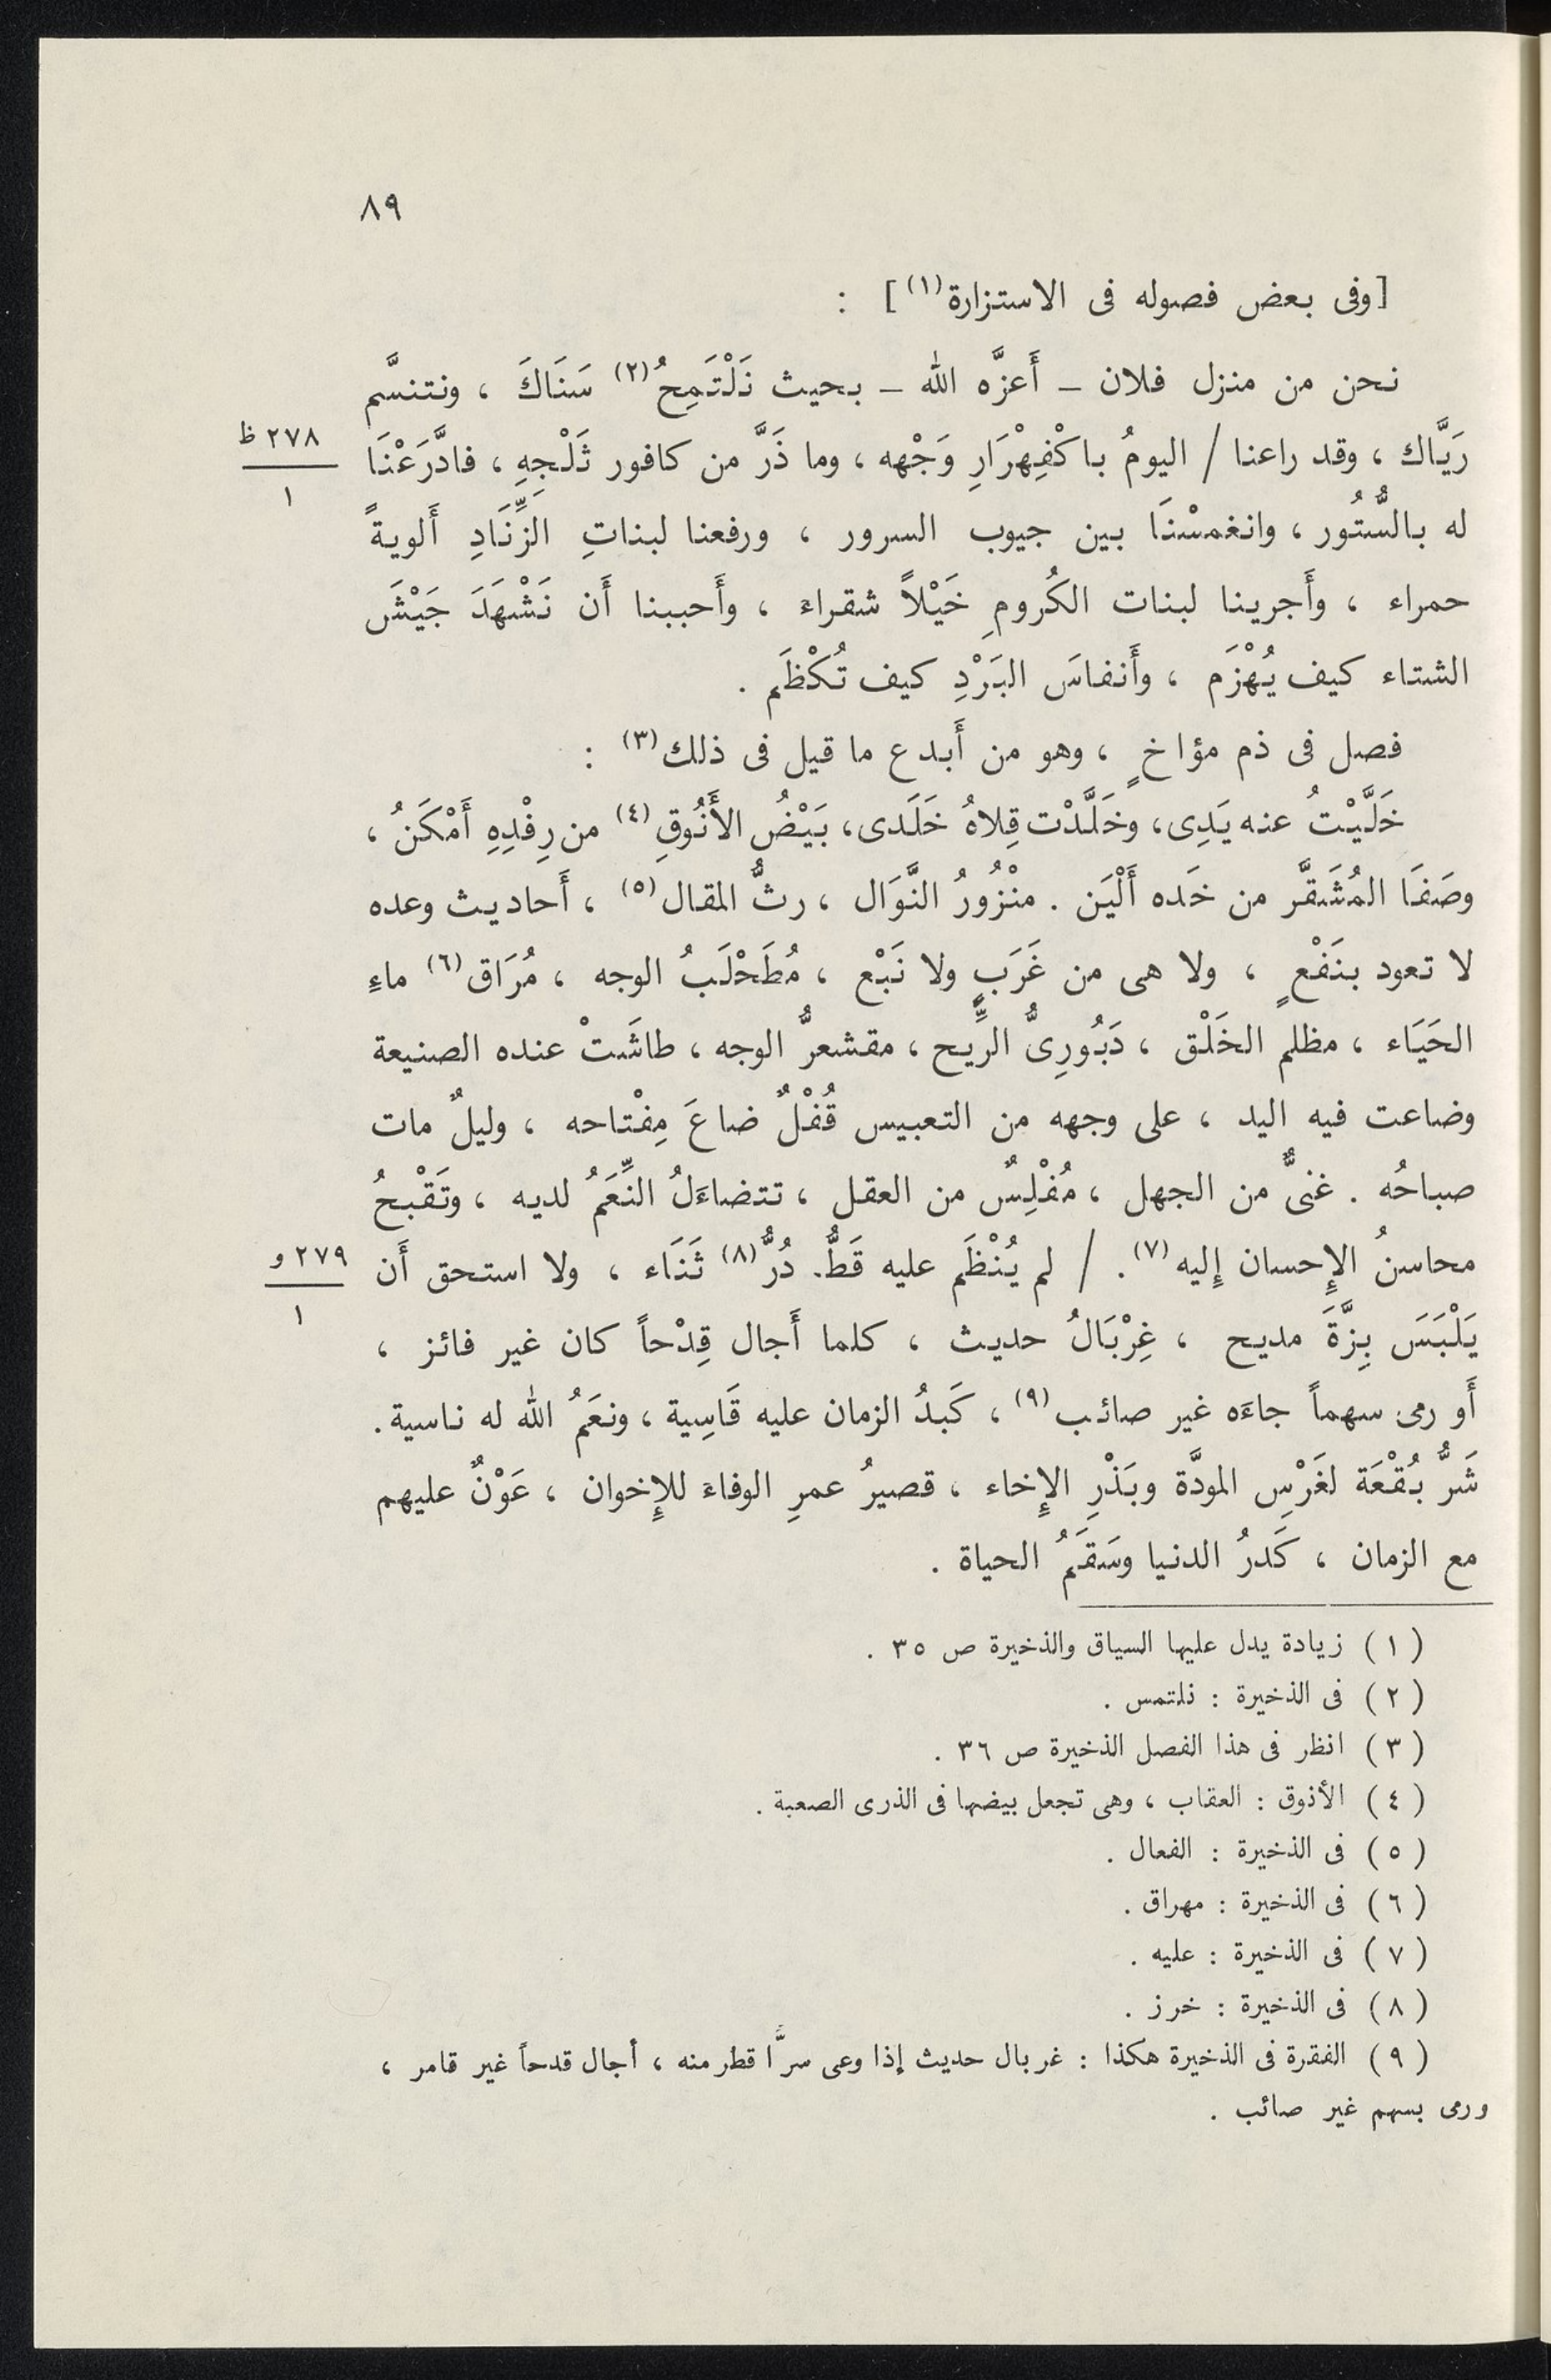 ٨٩
[وفى بعض فصوله فى الاستزارة(١)] :
نحن من منزل فلان – أَعزَّه الله – بحيث نَلْتَمِحُ(٢) سَنَاكَ ، ونتنسَّم
رَيَّاك ، وقد راعنا / اليومُ باكْفِهْرَارِ وَجْهه ، وما ذَرَّ من كافور ثَلْجِهِ ، فادَّرَعْنَا
٢٧٨ ظ
١
له بالسُّتُور ، وانغمسْنَا بين جيوب السرور ، ورفعنا لبناتِ الزِّنَادِ أَلويةً
حمراء ، وأَجرينا لبنات الكُرومِ خَيْلاً شقراء ، وأَحببنا أَن نَشْهَدَ جَيْشَ
الشتاء كيف يُهْزَم ، وأَنفاسَ البَرْدِ كيف تُكْظَم .
فصل فى ذم مؤاخٍ ، وهو من أَبدع ما قيل فى ذلك(٣) :
خَلَّيْتُ عنه يَدِى، وخَلَّدْت قِلاهُ خَلَدى، بَيْضُ الأَنُوقِ(٤) من رِفْدِهِ أَمْكَنُ ،
وصَفَا المُشَقَّر من خَده أَلْيَن . منْزُورُ النَّوَال ، رثُّ المقال(٥) ، أَحاديث وعده
لا تعود بنَفْعٍ ، ولا هى من غَرَبٍ ولا نَبْع ، مُطَحْلَبُ الوجه ، مُرَاق(٦) ماءِ
الحَيَاء ، مظلم الخَلْق ، دَبُورِىُّ الرِّيح ، مقشعرُّ الوجه ، طاشَتْ عنده الصنيعة
وضاعت فيه اليد ، على وجهه من التعبيس قُفْلٌ ضاعَ مِفْتاحه ، وليلٌ مات
صباحُه . غنىٌّ من الجهل ، مُفْلِسٌ من العقل ، تتضاءَلُ النِّعَمُ لديه ، وتَقْبحُ
محاسنُ الإِحسان إِليه(٧). / لم يُنْظَم عليه قَطُّ. دُرُّ(٨) ثَنَاء ، ولا استحق أَن
٢٧٩ و
١
يَلْبَسَ بِزَّةَ مديح ، غِرْبَالُ حديث ، كلما أَجال قِدْحاً كان غير فائز ،
أَو رمى سهماً جاءَه غير صائب(٩) ، كَبدُ الزمان عليه قَاسِية ، ونعَمُ الله له ناسية .
شَرُّ بُقْعَة لغَرْسِ المودَّة وبَذْرِ الإِخاء ، قصيرُ عمرِ الوفاءَ للإِخوان ، عَوْنٌ عليهم
مع الزمان ، كَدرُ الدنيا وسَقَمُ الحياة .
(١) زيادة يدل عليها السياق والذخيرة ص ٣٥ .
(٢) فى الذخيرة : نلتمس .
(٣) انظر فى هذا الفصل الذخيرة ص ٣٦ .
(٤) الأنوق : العقاب ، وهى تجعل بيضها فى الذرى الصعبة .
(٥) فى الذخيرة : الفعال .
(٦) فى الذخيرة : مهراق .
(٧) فى الذخيرة : عليه .
(٨) فى الذخيرة : خرز .
(٩) الفقرة فى الذخيرة هكذا : غربال حديث إذا وعى سرًّا قطر منه ، أجال قدحاً غير قامر ،
ورمى بسهم غير صائب .